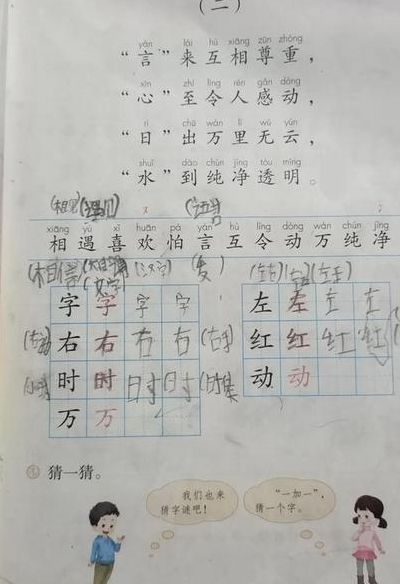 （二）
yán lái hù xiāng zūn zhòng
“言”来互相尊重，
xīn zhì lìng rén gǎn dòng
“心”至令人感动，
rì chū wàn lǐ wú yún
“日”出万里无云，
shuǐ dào chún jìng tòu míng
“水”到纯净透明。
xiāng yù xǐ huān pà yán hù lìng dòng wàn chún jìng
相遇喜欢怕言互令动万纯净
字字字字
左左左左
右右右右
红红红红
时时时时
动动
万万
猜一猜。
我们也来猜字谜吧！
“一加一”，猜一个字。